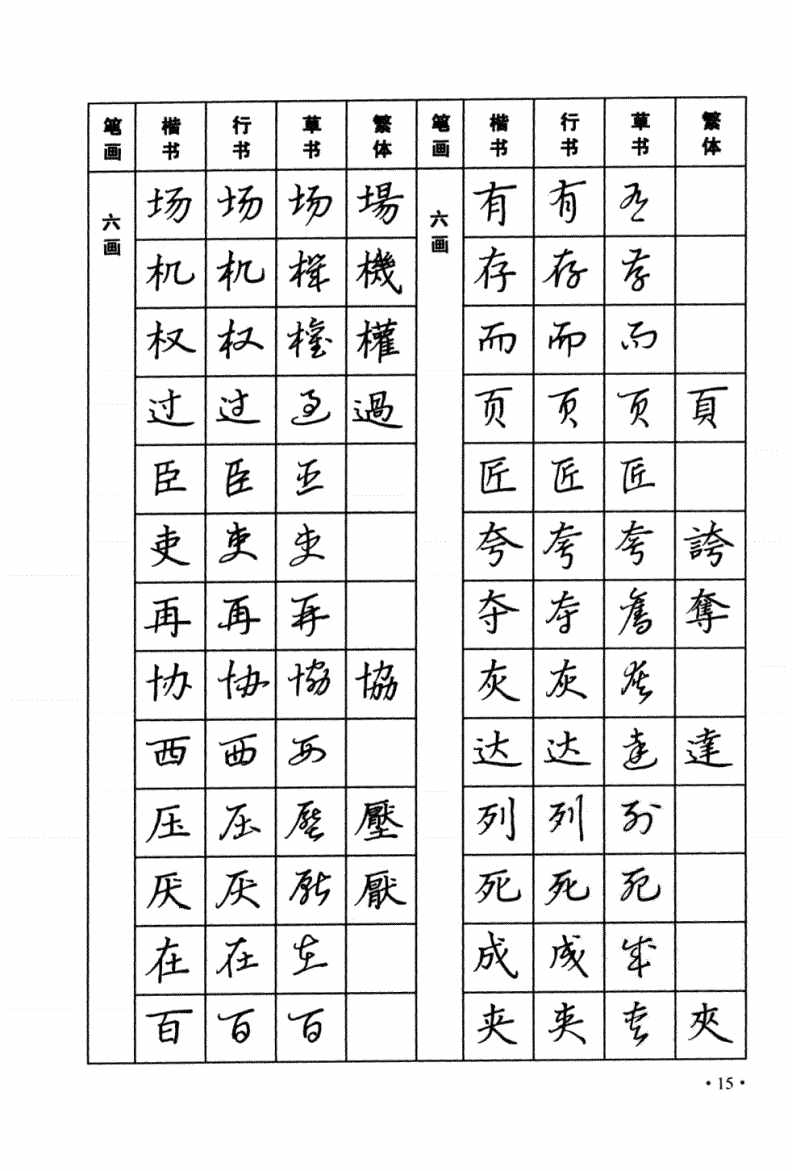 笔画 楷书 行书 草书 繁体 笔画 楷书 行书 草书 繁体
六画 场 场 场 場 六画 有 有 有
机 机 機 機 存 存 存
权 权 權 權 而 而 而
过 过 过 過 页 页 页 頁
臣 臣 臣 匠 匠 匠
吏 吏 吏 夸 夸 夸 誇
再 再 再 夺 夺 奪 奪
协 协 協 協 灰 灰 灰
西 西 西 达 达 達 達
压 压 壓 壓 列 列 列
厌 厌 厭 厭 死 死 死
在 在 在 成 成 成
百 百 百 夹 夹 夹 夾
·15·